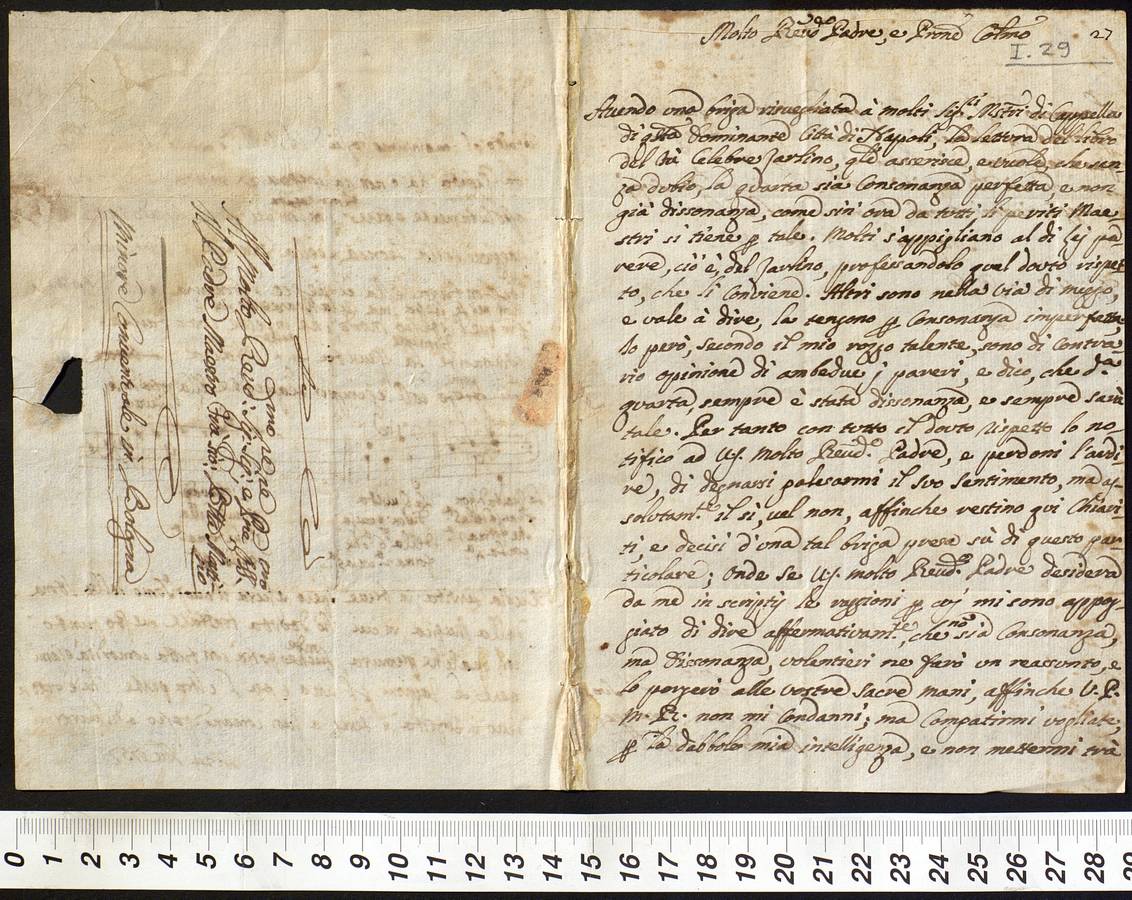 Molto Reudo Padre, e Prone Colmo
27
I. 29
Auendo una briga risuegliata à molti Sigri Mstri di Cappella
di qsta Dominante Città di Napoli, la lettura del libro
del fù Celebre Zarlino, qle asserisce, e uuole, che sen„
za dubio, la quarta sia Consonanza perfetta e non
già dissonanza, come sin' ora da tutti li periti Mae„
stri si tiene p tale. Molti s'appigliano al di lej pa„
rere, ciò è, del Zarlino, professandolo quel douto rispet
to, che li Conuiene. Altri sono nella uia di mezzo,
e uale à dire, la tengono p Consonanza imperfetta
Io però, secondo il mio rozzo talente, sono di Contra„
rio opinione di ambedue j pareri, e dico, che d.a
quarta, sempre è stata dissonanza, e sempre sarà
tale. Per tanto con tutto il douto rispetto lo no„
tifico ad V.S. Molto Reud.o Padre, e perdoni l'ardi„
re, di degnarsi palesarmi il suo sentimento, ma as„
solutam.te il sì, uel non, affinche restino qui Chiari„
ti, e decisi d'una tal briga presa sù di questo par„
ticolare; Onde se V.S. molto Reud.o Padre desidera
da me in scriptis le raggioni p cuj mi sono appog„
giato di dire affermatiuam.te, che no sia Consonanza,
ma Dissonanza, uolentieri ne farò un reassunto, e
lo porgerò alle uostre sacre mani, affinche V. P.
M. R. non mi Condanni; ma Compatirmi uogliate,
p la debbole mia intelligenza, e non mettermi trà
Al Molto Reud:
Il Padre Maestro
Minore Conuentuale in Bologna
0 1 2 3 4 5 6 7 8 9 10 11 12 13 14 15 16 17 18 19 20 21 22 23 24 25 26 27 28 29